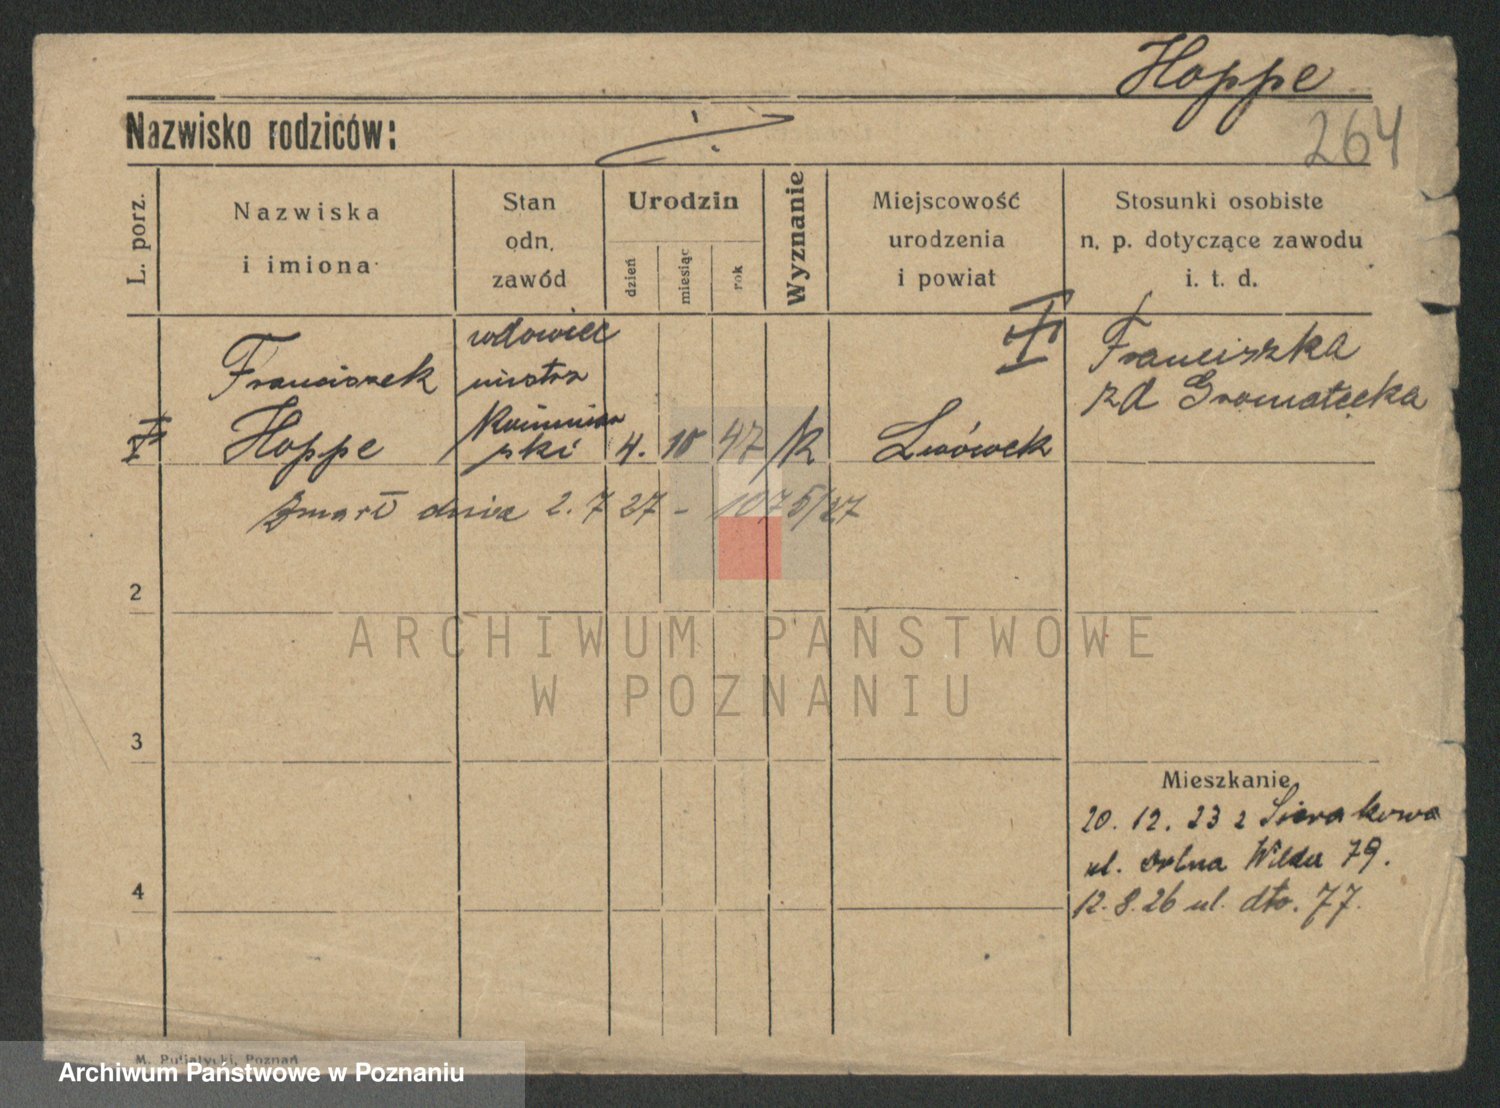 Hoppe
264
Nazwisko rodziców:
L. porz.
Nazwiska
i imiona
Stan
odn.
zawód
Urodzin
dzień
miesiąc
rok
Wyznanie
Miejscowość
urodzenia
i powiat
Stosunki osobiste
n. p. dotyczące zawodu
i. t. d.
Franciszek
Hoppe
wdowiec
mistrz
Kominiar
ski
4. 10 47
k
Lwówek
Franciszka
zd Gromatecka
Zmarł dnia 2. 7 27 - 1075/27
2
ARCHIWUM PAŃSTWOWE
W POZNANIU
3
Mieszkanie
20. 12. 23 z Sierakowa
ul. Dolna Wilda 79.
4
12. 8. 26 ul. dto. 77.
M. Putiatycki, Poznań
Archiwum Państwowe w Poznaniu